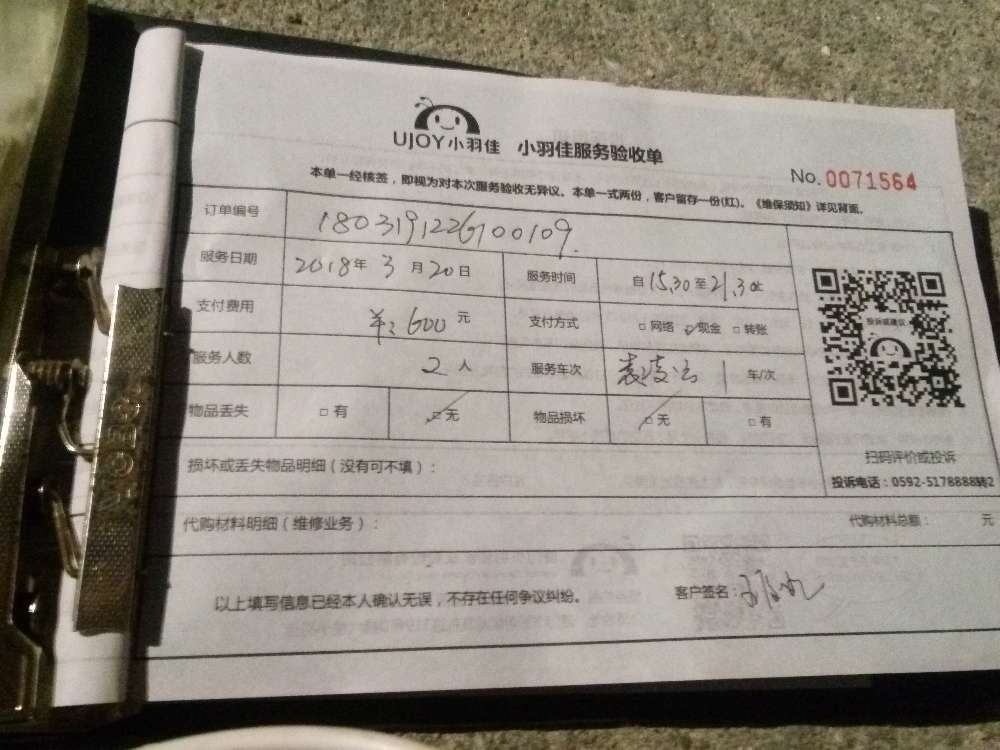 UJOY小羽佳 小羽佳服务验收单
No. 0071564
本单一经核签，即视为对本次服务验收无异议。本单一式两份，客户留存一份(红)。《维保须知》详见背面。
订单编号 1803191226100109
服务日期 2018年 3月 20日 服务时间 自15.30至21.30
支付费用 ¥:600元 支付方式 □网络 ☑现金 □转账
投诉或建议
服务人数 2人 服务车次 1 车/次
物品丢失 □有 ☑无 物品损坏 ☑无 □有
扫码评价或投诉
投诉电话：0592-5178888转2
损坏或丢失物品明细（没有可不填）：
代购材料明细（维修业务）： 代购材料总额： 元
以上填写信息已经本人确认无误，不存在任何争议纠纷。 客户签名：